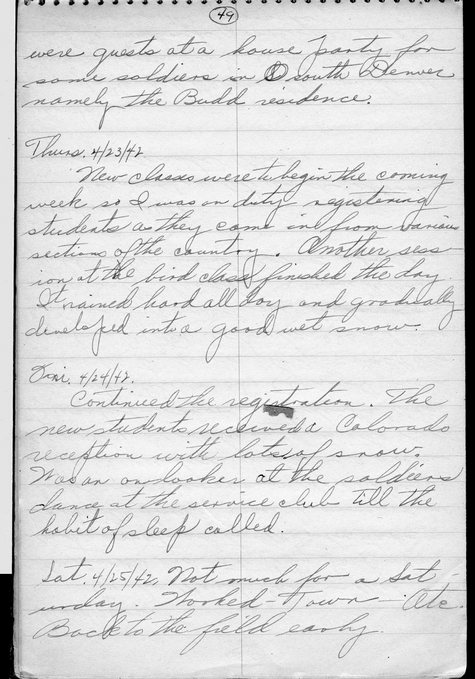 49
were guests at a house party for
some soldiers in South Denver
namely the Budd residence.
Thurs. 4/23/42
New classes were to begin the coming
week so I was on duty registering
students as they came in from various
sections of the country. Another sess-
ion at the bird class finished the day.
It rained hard all day and gradually
developed into a good wet snow.
Fri. 4/24/42.
Continued the registration. The
new students received a Colorado
reception with lots of snow.
Was an onlooker at the soldiers
dance at the service club till the
habit of sleep called.
Sat. 4/25/42. Not much for a Sat
urday. Worked - Town - Ate
Back to the field early.